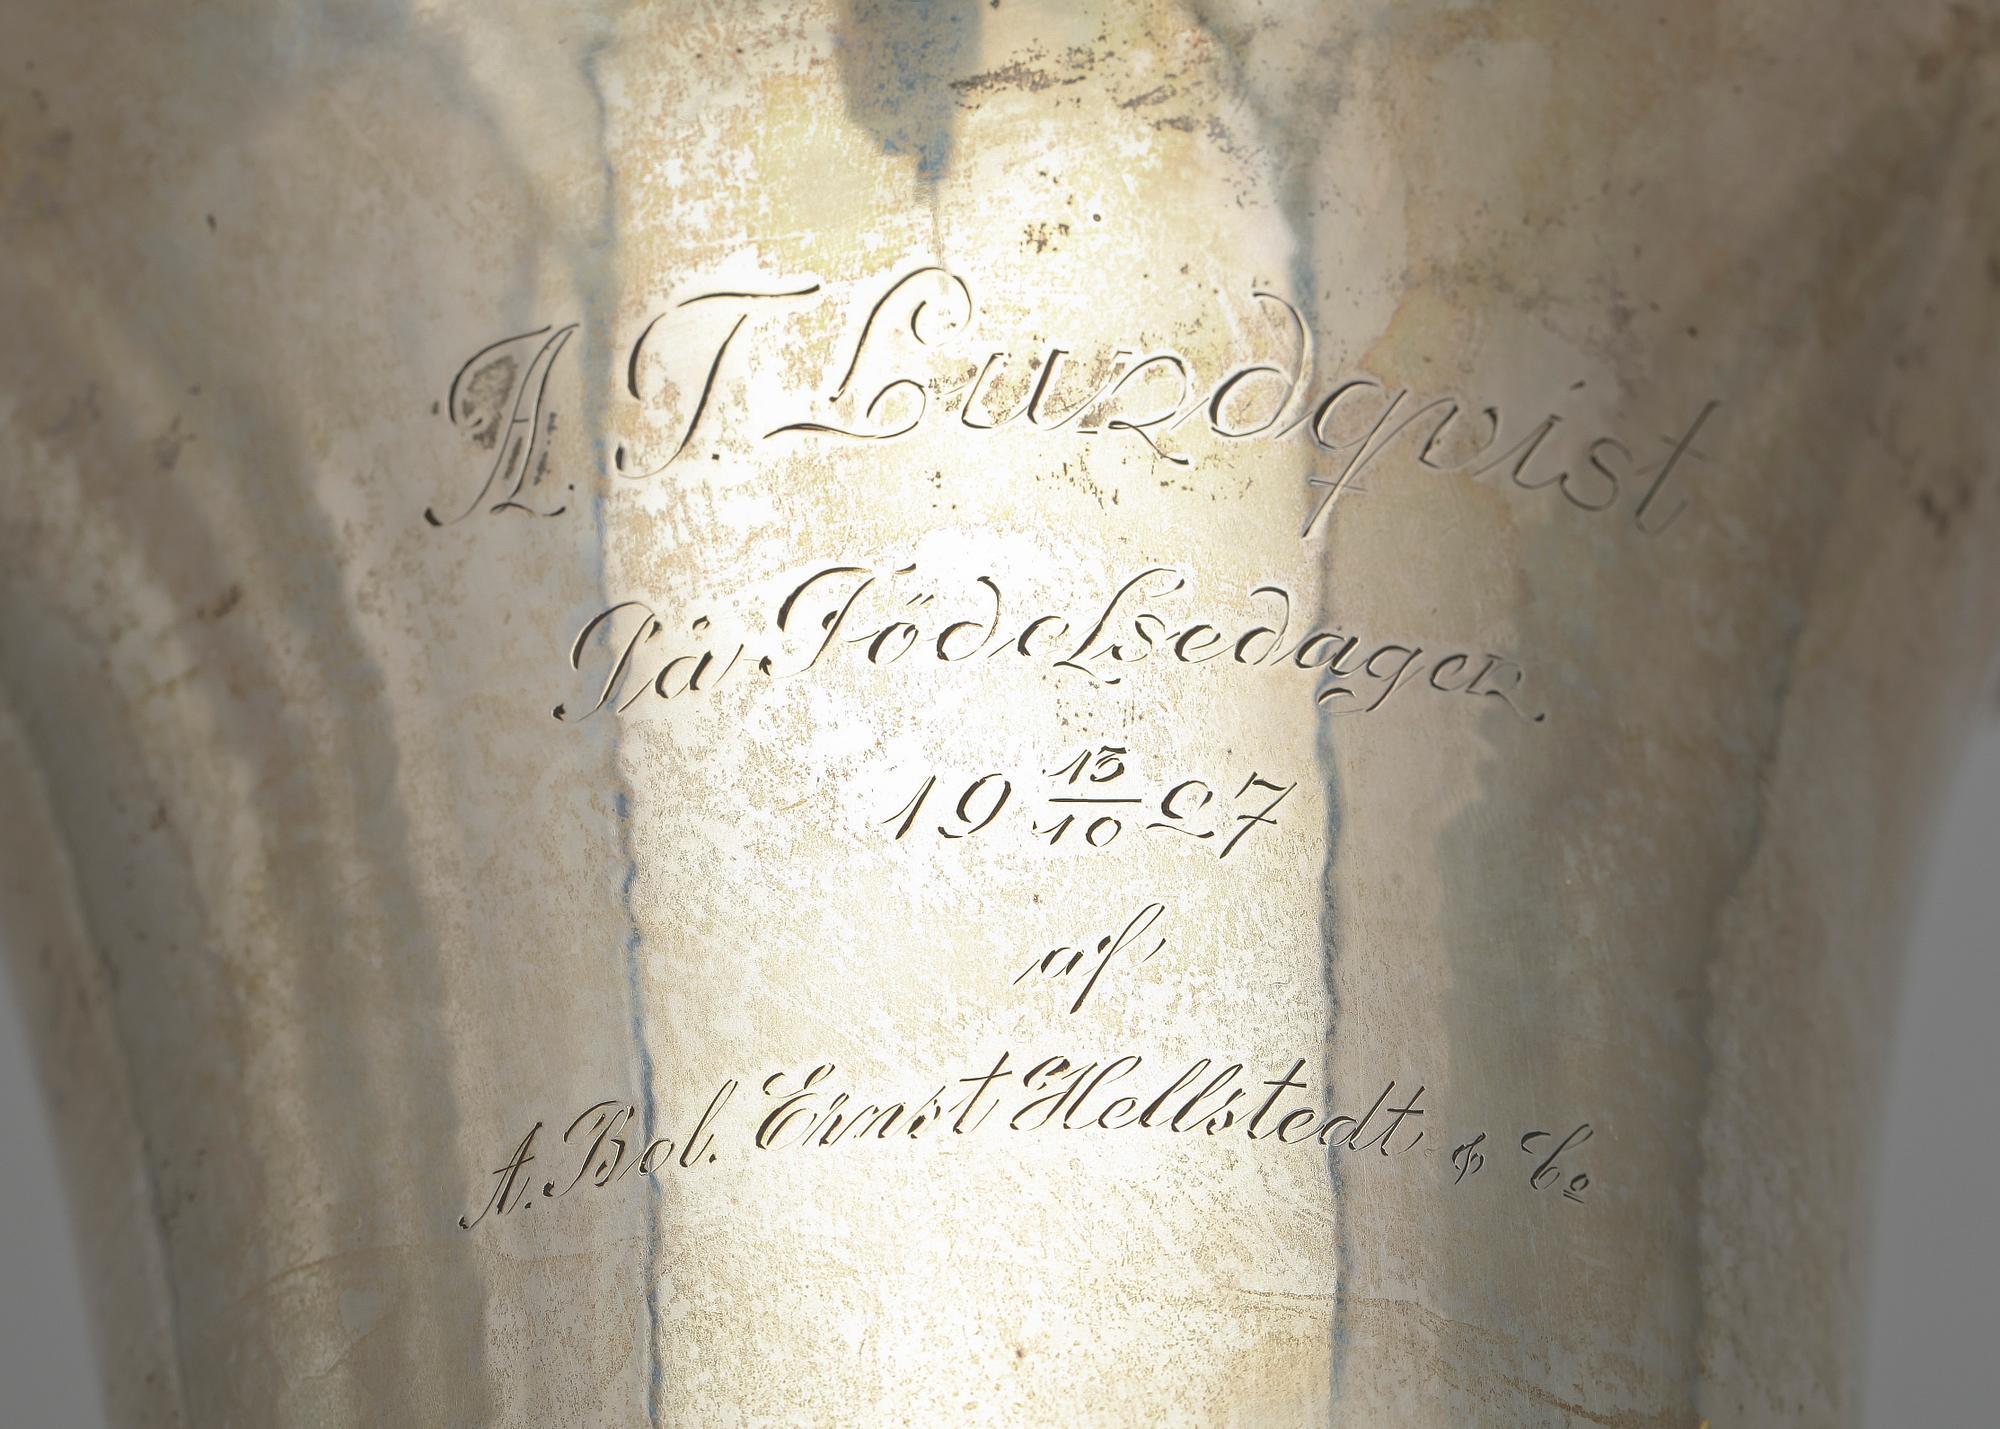 A. T. Lundqvist
På Födelsedagen.
19 13/10 27
af
A. Bol. Ernst Hellstedt & Co